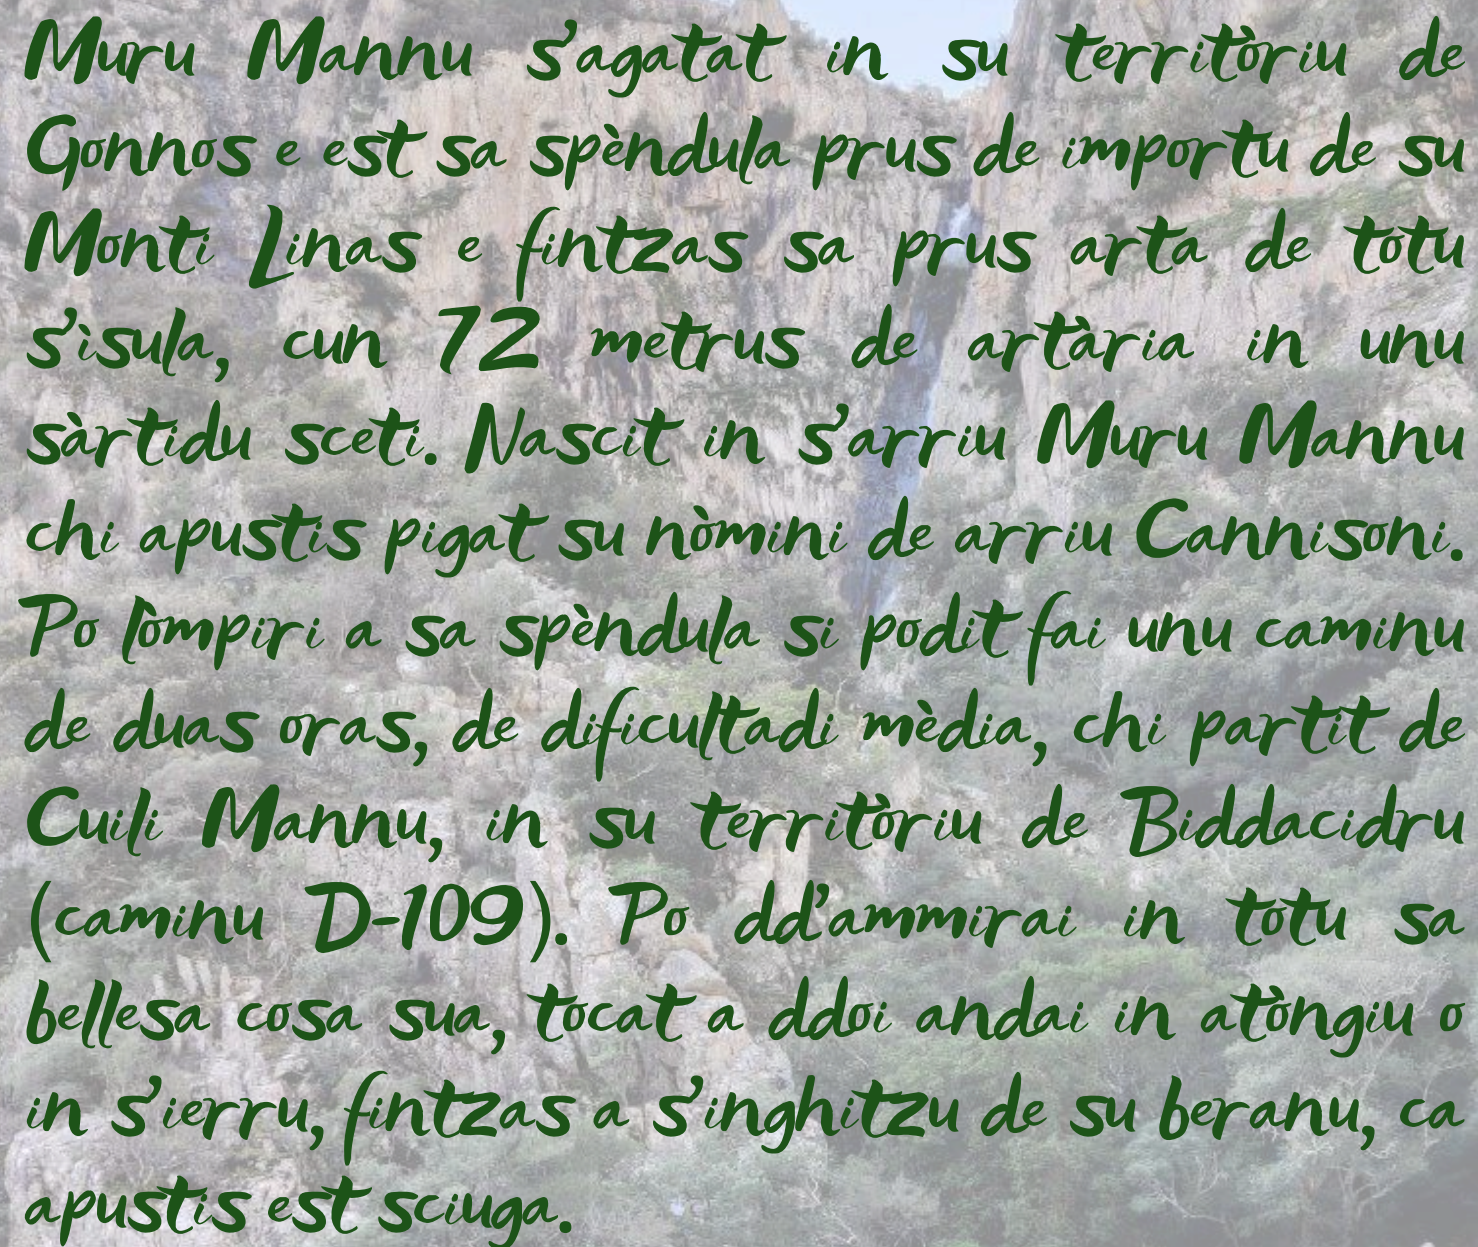 Muru Mannu s'agatat in su territòriu de
Gonnos e est sa spèndula prus de importu de su
Monti Linas e fintzas sa prus arta de totu
s'ìsula, cun 72 metrus de artària in unu
sàrtidu sceti. Nascit in s'arriu Muru Mannu
chi apustis pigat su nòmini de arriu Cannisoni.
Po lòmpiri a sa spèndula si podit fai unu caminu
de duas oras, de dificultadi mèdia, chi partit de
Cuili Mannu, in su territòriu de Biddacidru
(caminu D-109). Po dd'ammirai in totu sa
bellesa cosa sua, tocat a ddoi andai in atòngiu o
in s'ierru, fintzas a s'inghitzu de su beranu, ca
apustis est sciuga.